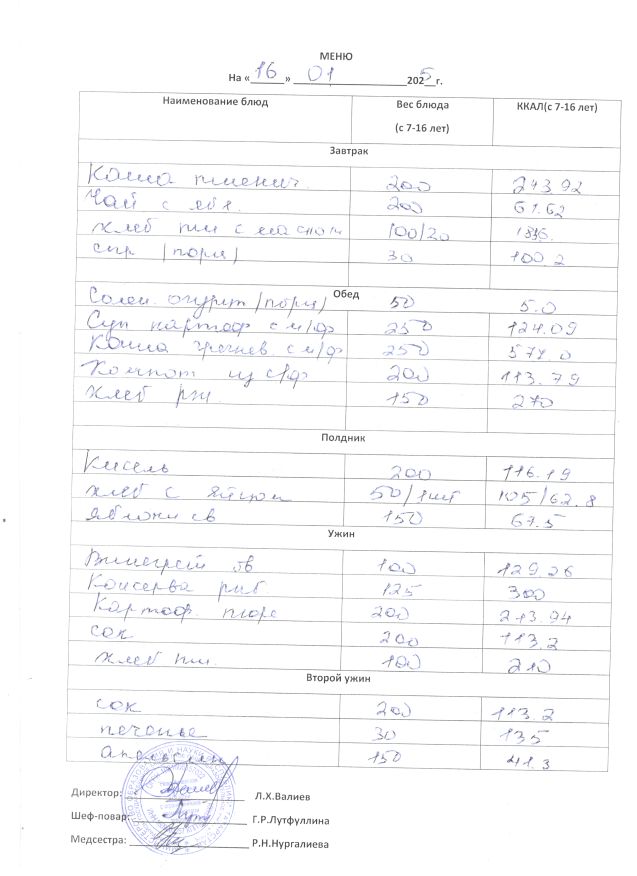 МЕНЮ
На «16» 01 2025 г.
Наименование блюд Вес блюда (с 7-16 лет) ККАЛ(с 7-16 лет)
Завтрак
Каша пшенич. 200 243.92
Чай с 200 61.62
хлеб пш с маслом 100/20
сыр /порц/ 30 100.2
Обед
Солен. огурец /порц/ 50 5.0
Суп картоф с м/ф 250 124.09
Каша гречнев. с м/ф 250
Компот из с/ф 200 113.79
хлеб рж. 150 270
Полдник
Кисель 200 116.19
хлеб с яйцом 50/1шт 105/62.8
яблоки св 150 67.5
Ужин
Винегрет ов 100 129.26
Консерва рыб. 125 300
Картоф. пюре 200 213.94
сок 200 113.2
хлеб пш. 100 210
Второй ужин
сок 200 113.2
печенье 30 135
апельсин 150 41.3
Директор: Л.Х.Валиев
Шеф-повар: Г.Р.Лутфуллина
Медсестра: Р.Н.Нургалиева